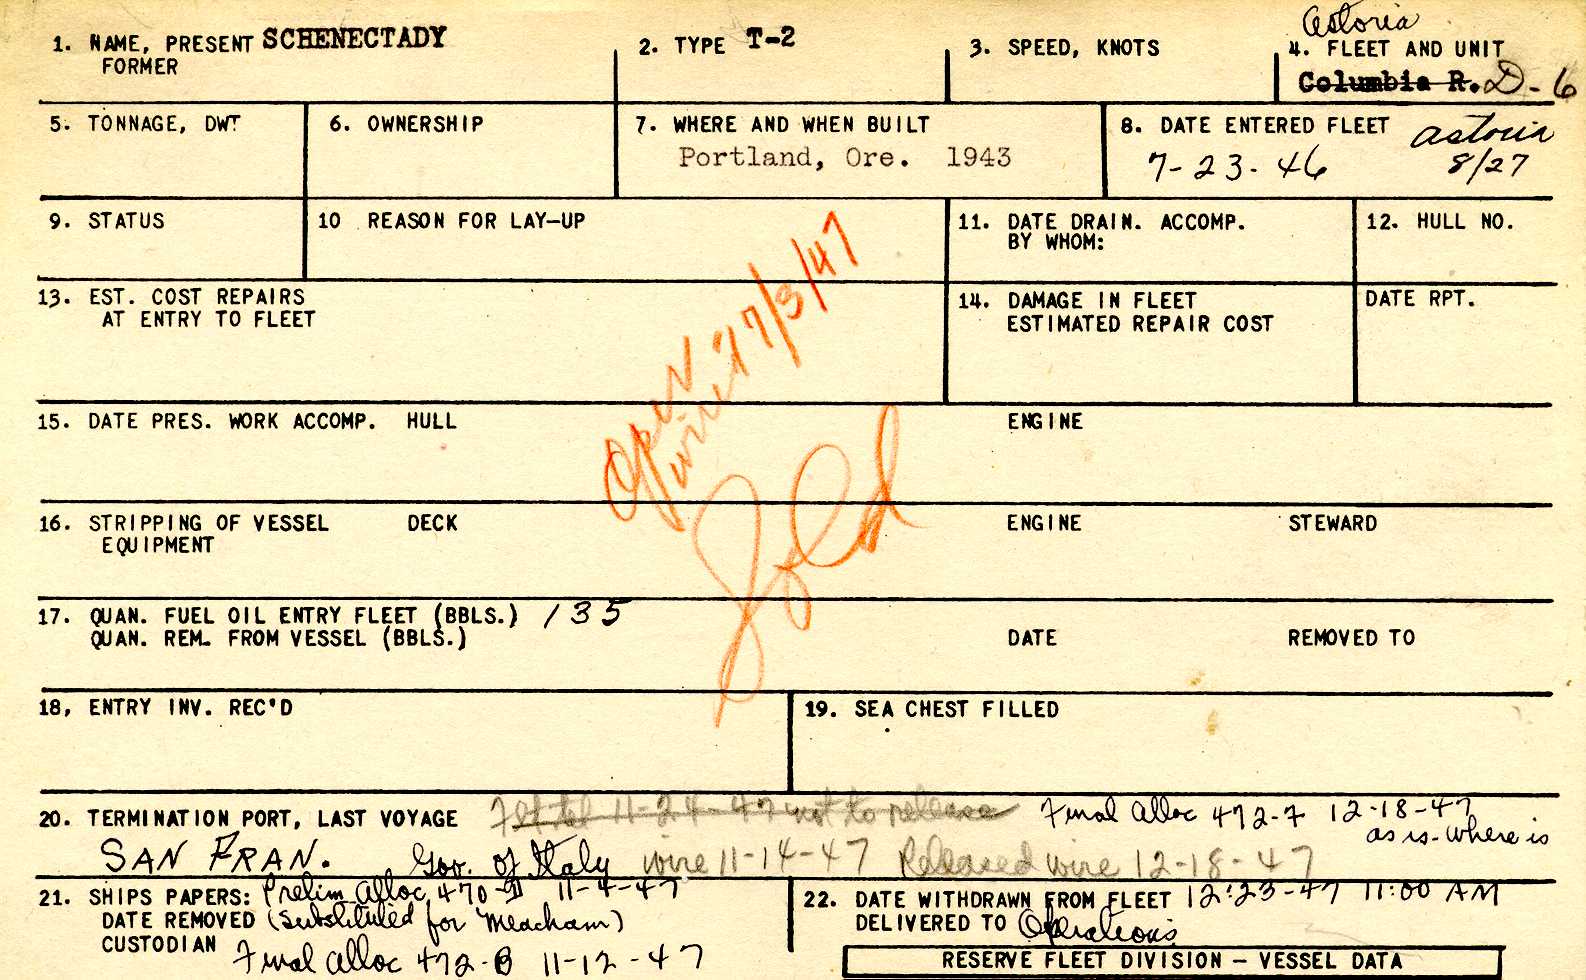 Astoria
1. NAME, PRESENT SCHENECTADY 2. TYPE T-2 3. SPEED, KNOTS 4. FLEET AND UNIT
FORMER Columbia R. D-6
5. TONNAGE, DWT 6. OWNERSHIP 7. WHERE AND WHEN BUILT 8. DATE ENTERED FLEET Astoria
Portland, Ore. 1943 7-23-46 8/27
9. STATUS 10 REASON FOR LAY-UP 11. DATE DRAIN. ACCOMP. 12. HULL NO.
BY WHOM:
13. EST. COST REPAIRS 14. DAMAGE IN FLEET DATE RPT.
AT ENTRY TO FLEET ESTIMATED REPAIR COST
Open
wire 7/3/47
15. DATE PRES. WORK ACCOMP. HULL ENGINE
Sold
16. STRIPPING OF VESSEL DECK ENGINE STEWARD
EQUIPMENT
17. QUAN. FUEL OIL ENTRY FLEET (BBLS.) 135
QUAN. REM. FROM VESSEL (BBLS.) DATE REMOVED TO
18, ENTRY INV. REC'D 19. SEA CHEST FILLED
20. TERMINATION PORT, LAST VOYAGE 11-24-47 not to release Final Alloc 472-7 12-18-47
as is-where is
SAN FRAN. Gov. of Italy wire 11-14-47 Released wire 12-18-47
21. SHIPS PAPERS: Prelim alloc 470- 11-4-47 22. DATE WITHDRAWN FROM FLEET 12-23-47 11:00 AM
DATE REMOVED (Substituted for Meacham) DELIVERED TO Operations
CUSTODIAN Final alloc 472-B 11-12-47
RESERVE FLEET DIVISION – VESSEL DATA